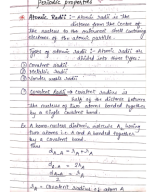 Periodic properties
* Atomic Radii :- Atomic radii is the
distance from the center of
the nucleus to the outermost shell containing
electrons of the atomic particle.
Types of atomic radii :- Atomic radii are
divided into three types:
① Covalent radii
② Metallic radii
③ Vander Waals radii
① Covalent Radii → Covalent radius is
half of the distance between
the nucleus of two atoms bonded together
by a single covalent bond.
Ex. A homo nuclear diatomic molecule A₂ having
two atoms i.e. A and A bonded together
by a covalent bond.
Thus
d A-A = rA + rA
d A-A = 2rA
rA = d A-A / 2
rA = Covalent radius of atom A